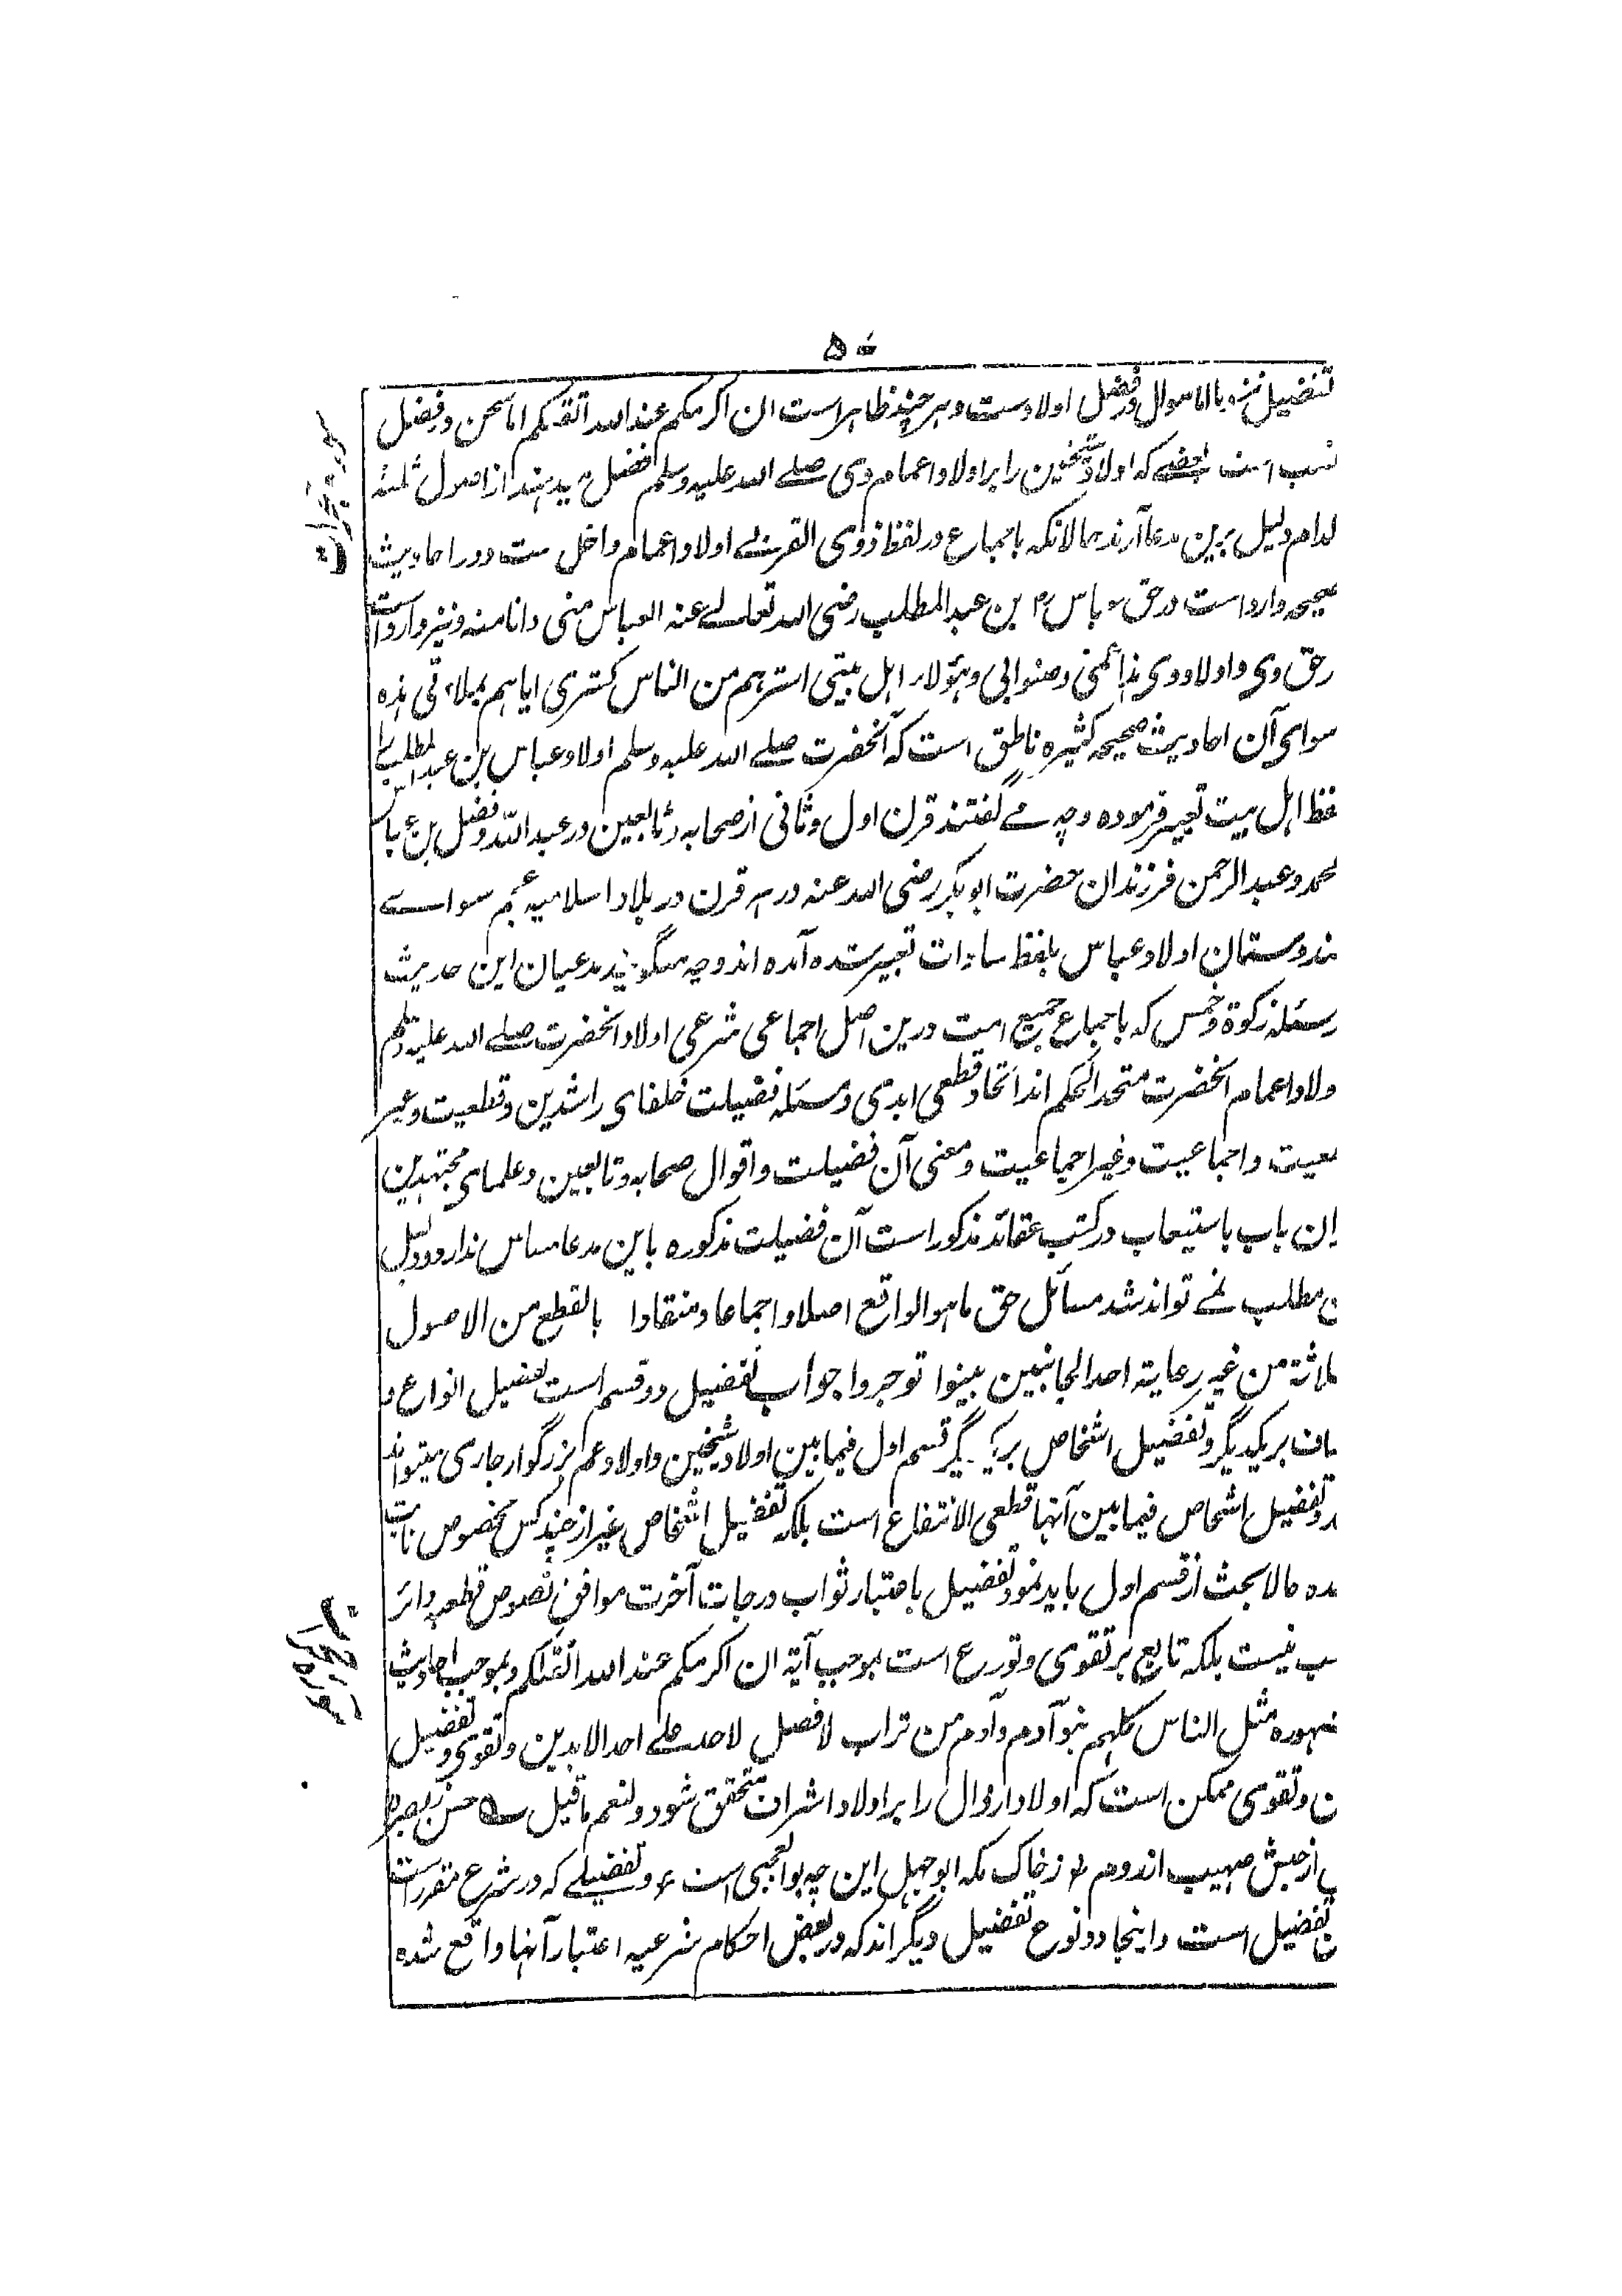 ۵۰
تفضیل نیزه بالاموال و فضل اولاد ست و هر چند ظاهر است ان اکرمکم عند الله اتقکم اما سخن در فضل
نسب است بعضے که اولاد شیخین را بر اولاد اعمام وی صلے الله علیه وسلم افضل میدهند از اصول ثلثه
کدام دلیل برین مدعا آرند حالانکه باجماع در لفظ ذوی القربے اولاد اعمام داخل ست و در احادیث
صحیحه وارد است در حق عباس رض بن عبد المطلب رضی الله تعالے عنه العباس منی وانا منه و نیز وارد است
در حق وی و اولاد وی هذا عمی وصنوابی وهؤلاء اهل بیتی استرهم من النار کستری ایاهم بملاءتی هذه
سوای آن احادیث صحیحه کثیره ناطق است که آنحضرت صلے الله علیه وسلم اولاد عباس بن عبد المطلب را
لفظ اهل بیت تعبیر فرموده و چه مے گفتند قرن اول و ثانی از صحابه و تابعین در عبد الله و فضل بن عباس
محمد و عبد الرحمن فرزندان حضرت ابوبکر رضی الله عنه در هر قرن در بلاد اسلامیه عجم سواے
هندوستان اولاد عباس بلفظ سادات تعبیر شده آمده اند و چه میگویند مدعیان این حدیث
مسئله زکوة و خمس که باجماع جمیع امت درین اصل اجماعی شرعی اولاد آنحضرت صلے الله علیه وسلم
اولاد اعمام آنحضرت متحد الحکم اند اتحاد قطعی ابدی و مسئله فضیلت خلفای راشدین و قطعیت و غیر
قطعیت و اجماعیت و غیر اجماعیت و معنی آن فضیلت و اقوال صحابه و تابعین و علمای مجتهدین
دران باب باستیعاب در کتب عقائد مذکور است آن فضیلت مذکوره باین مدعا مساس ندارد و دلیل
این مطلب نمے تواند شد مسائل حق ما هو الواقع اصلا و اجماعا و منقادا بالقطع من الاصول
الثلاثة من غیر رعایة احد الجانبین بینوا توجروا جواب تفضیل دو قسم است تفضیل انواع و
اصناف بر یکدیگر و تفضیل اشخاص بر یکدیگر قسم اول فیمابین اولاد شیخین و اولاد عم بزرگوار جاری میتواند
شد و تفضیل اشخاص فیمابین آنها قطعی الانتفاع است بلکه تفضیل اشخاص غیر از چند کس مخصوص ثابت
نشده حالا بحث از قسم اول باید نمود تفضیل باعتبار ثواب درجات آخرت موافق نصوص قطعیه دائر
نسب نیست بلکه تابع بر تقوی و تورع است بموجب آیة ان اکرمکم عند الله اتقاکم و بموجب احادیث
مشهوره مثل الناس کلهم بنو آدم و آدم من تراب لا فضل لاحد علے احد الا بدین و تقوی و تفضیل
دین و تقوی ممکن است که اولاد ارذال را بر اولاد اشراف متحقق شود و لنعم ما قیل ے حسن ز بصره
بلال از حبش صهیب از روم ؛ ز خاک مکه ابوجهل این چه بوالعجبی است ؛ و تفضیلے که در شرع مقرر است
این تفضیل است و اینجا دو نوع تفضیل دیگر اند که در بعض احکام شرعیه اعتبار آنها واقع شده